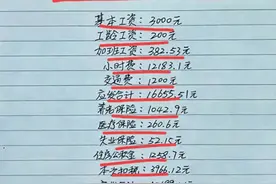 基本工资：3000元
工龄工资：200元
加班工资：382.53元
小时费：12183.1元
交通费：1200元
应发合计：16655.51元
养老保险：1042.9元
医疗保险：260.6元
失业保险：52.15元
住房公积金：1258.7元
本次扣税：3966.12元